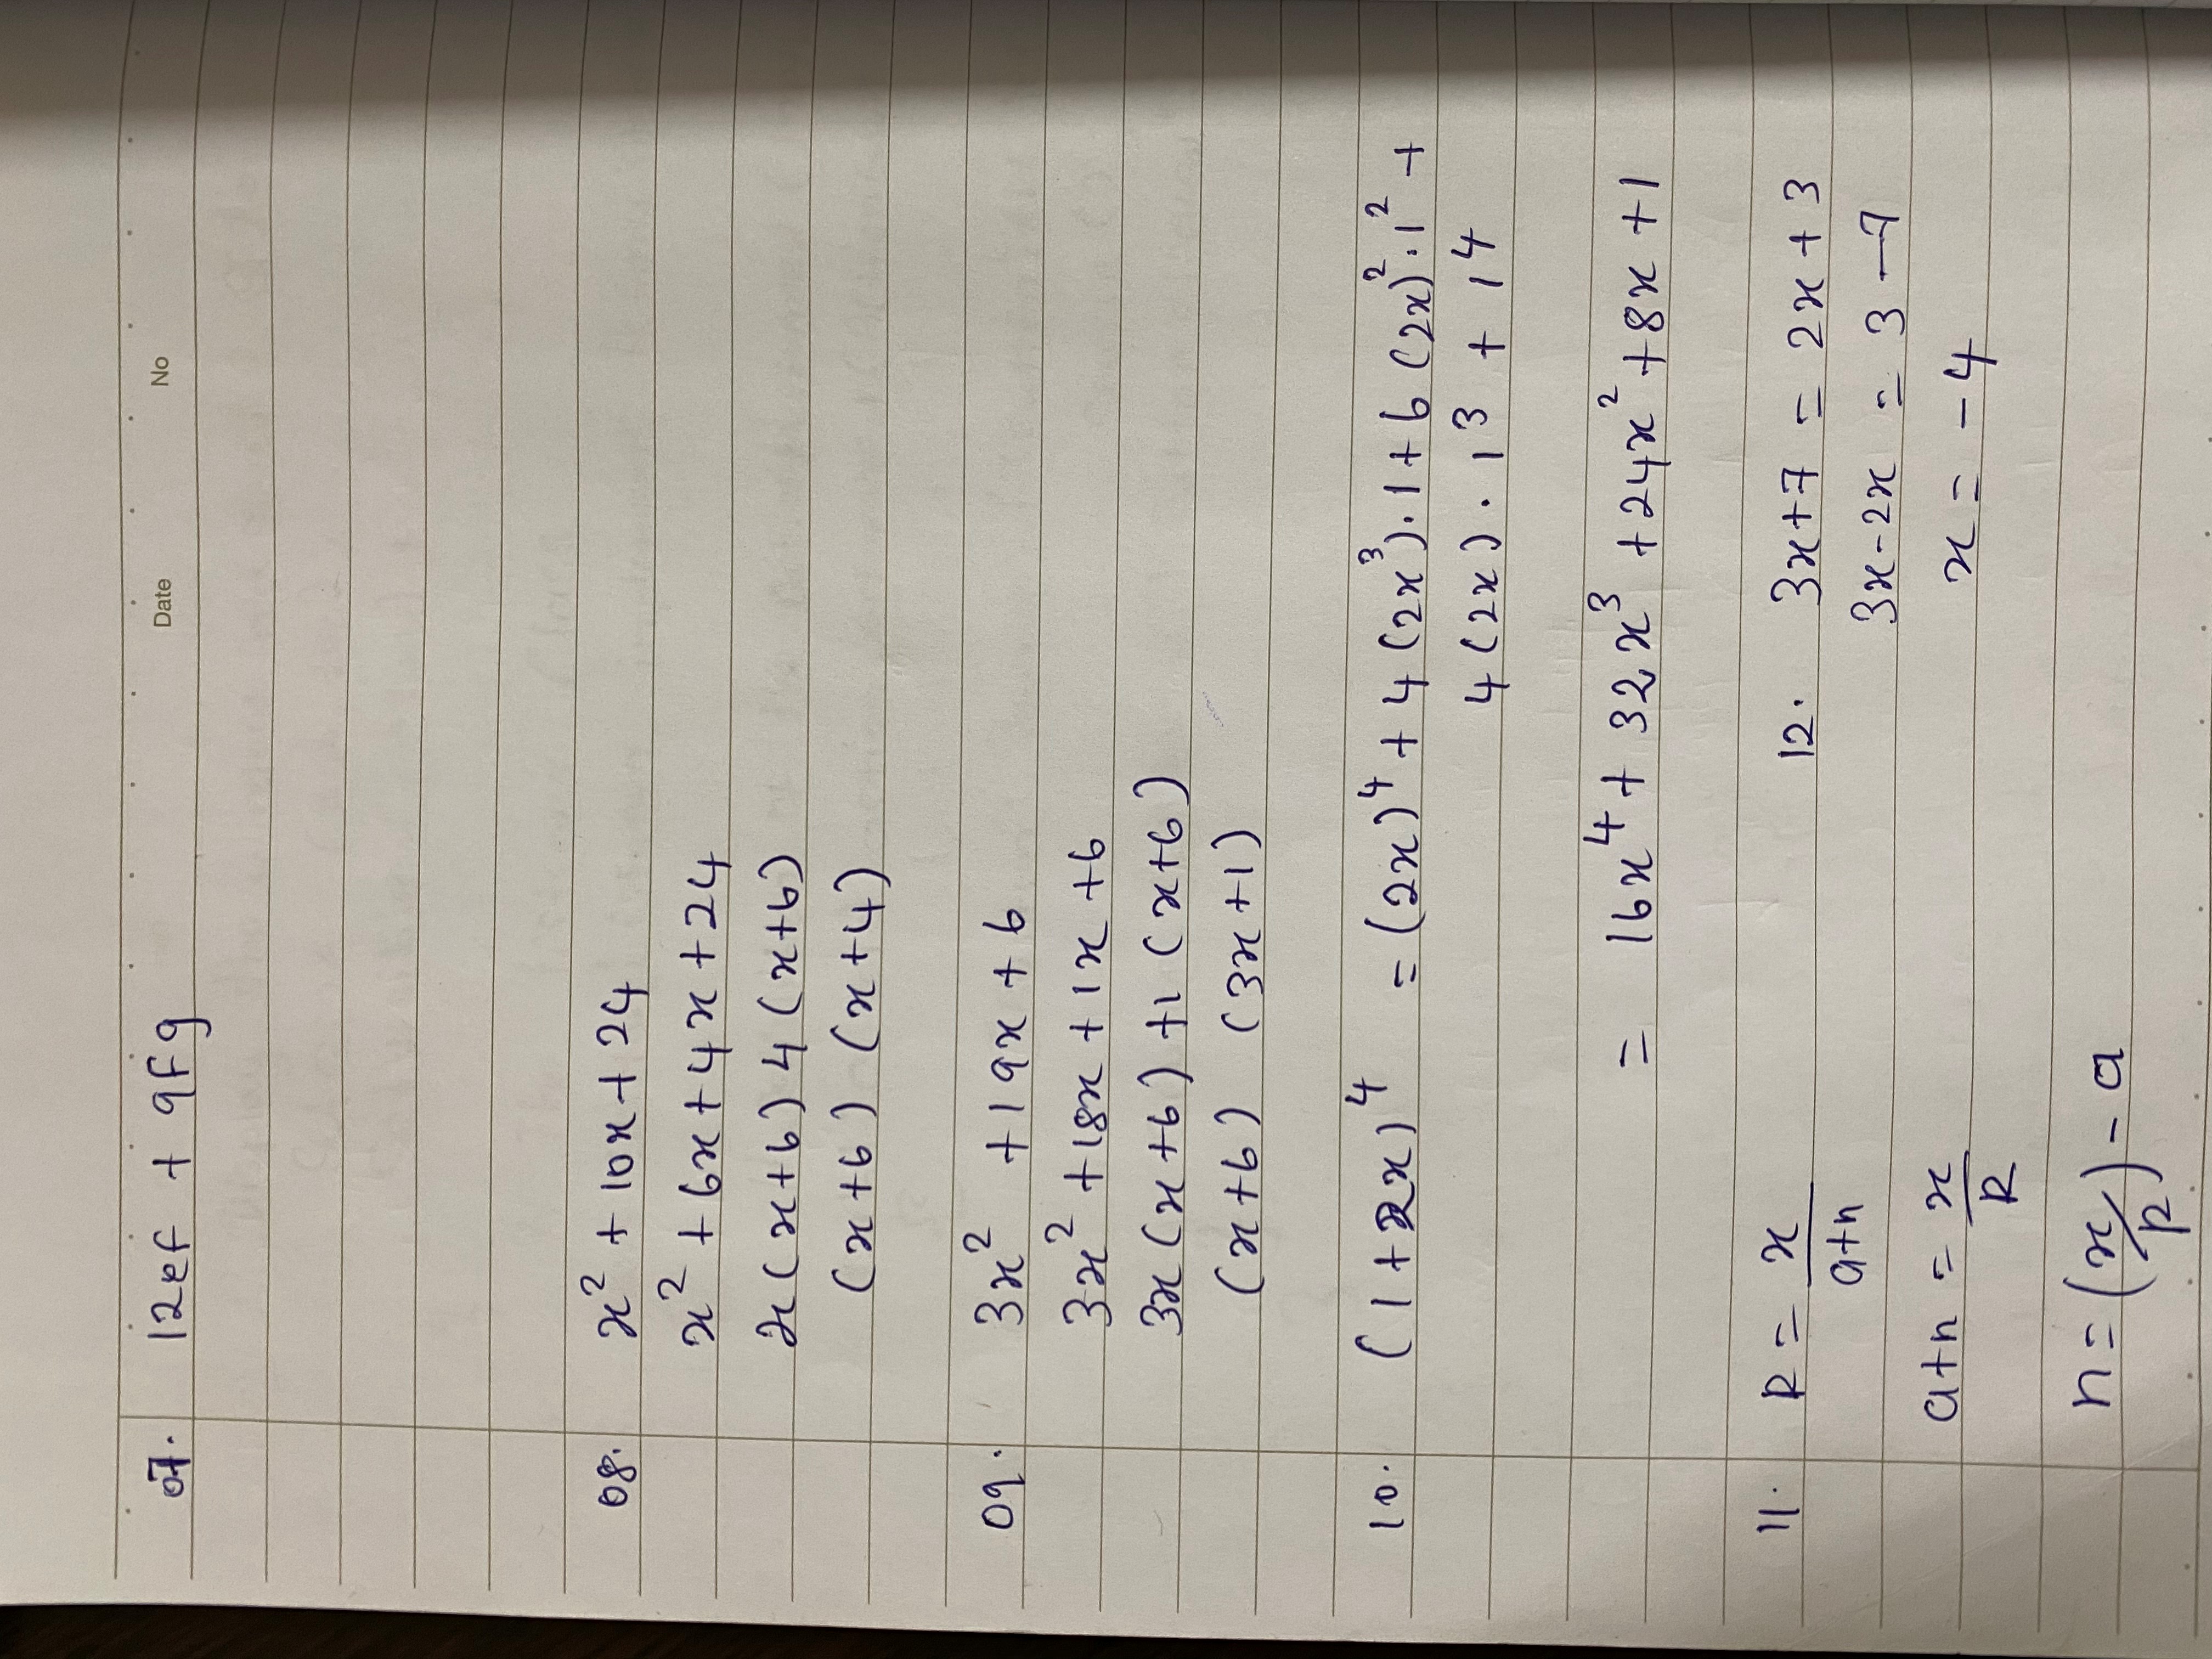 Date No
07. 12ef + 9fg
08. x² + 10x + 24
x² + 6x + 4x + 24
x(x+6) 4(x+6)
(x+6) (x+4)
09. 3x² + 19x + 6
3x² + 18x + 1x + 6
3x(x+6) +1 (x+6)
(x+6) (3x+1)
10. (1+2x)⁴ = (2x)⁴ + 4(2x³).1 + 6(2x)².1² +
4(2x).1³ + 1⁴
= 16x⁴ + 32x³ + 24x² + 8x + 1
11. R = x/a+n
a+n = x/R
n = (x/R) - a
12. 3x+7 = 2x+3
3x-2x = 3-7
x = -4